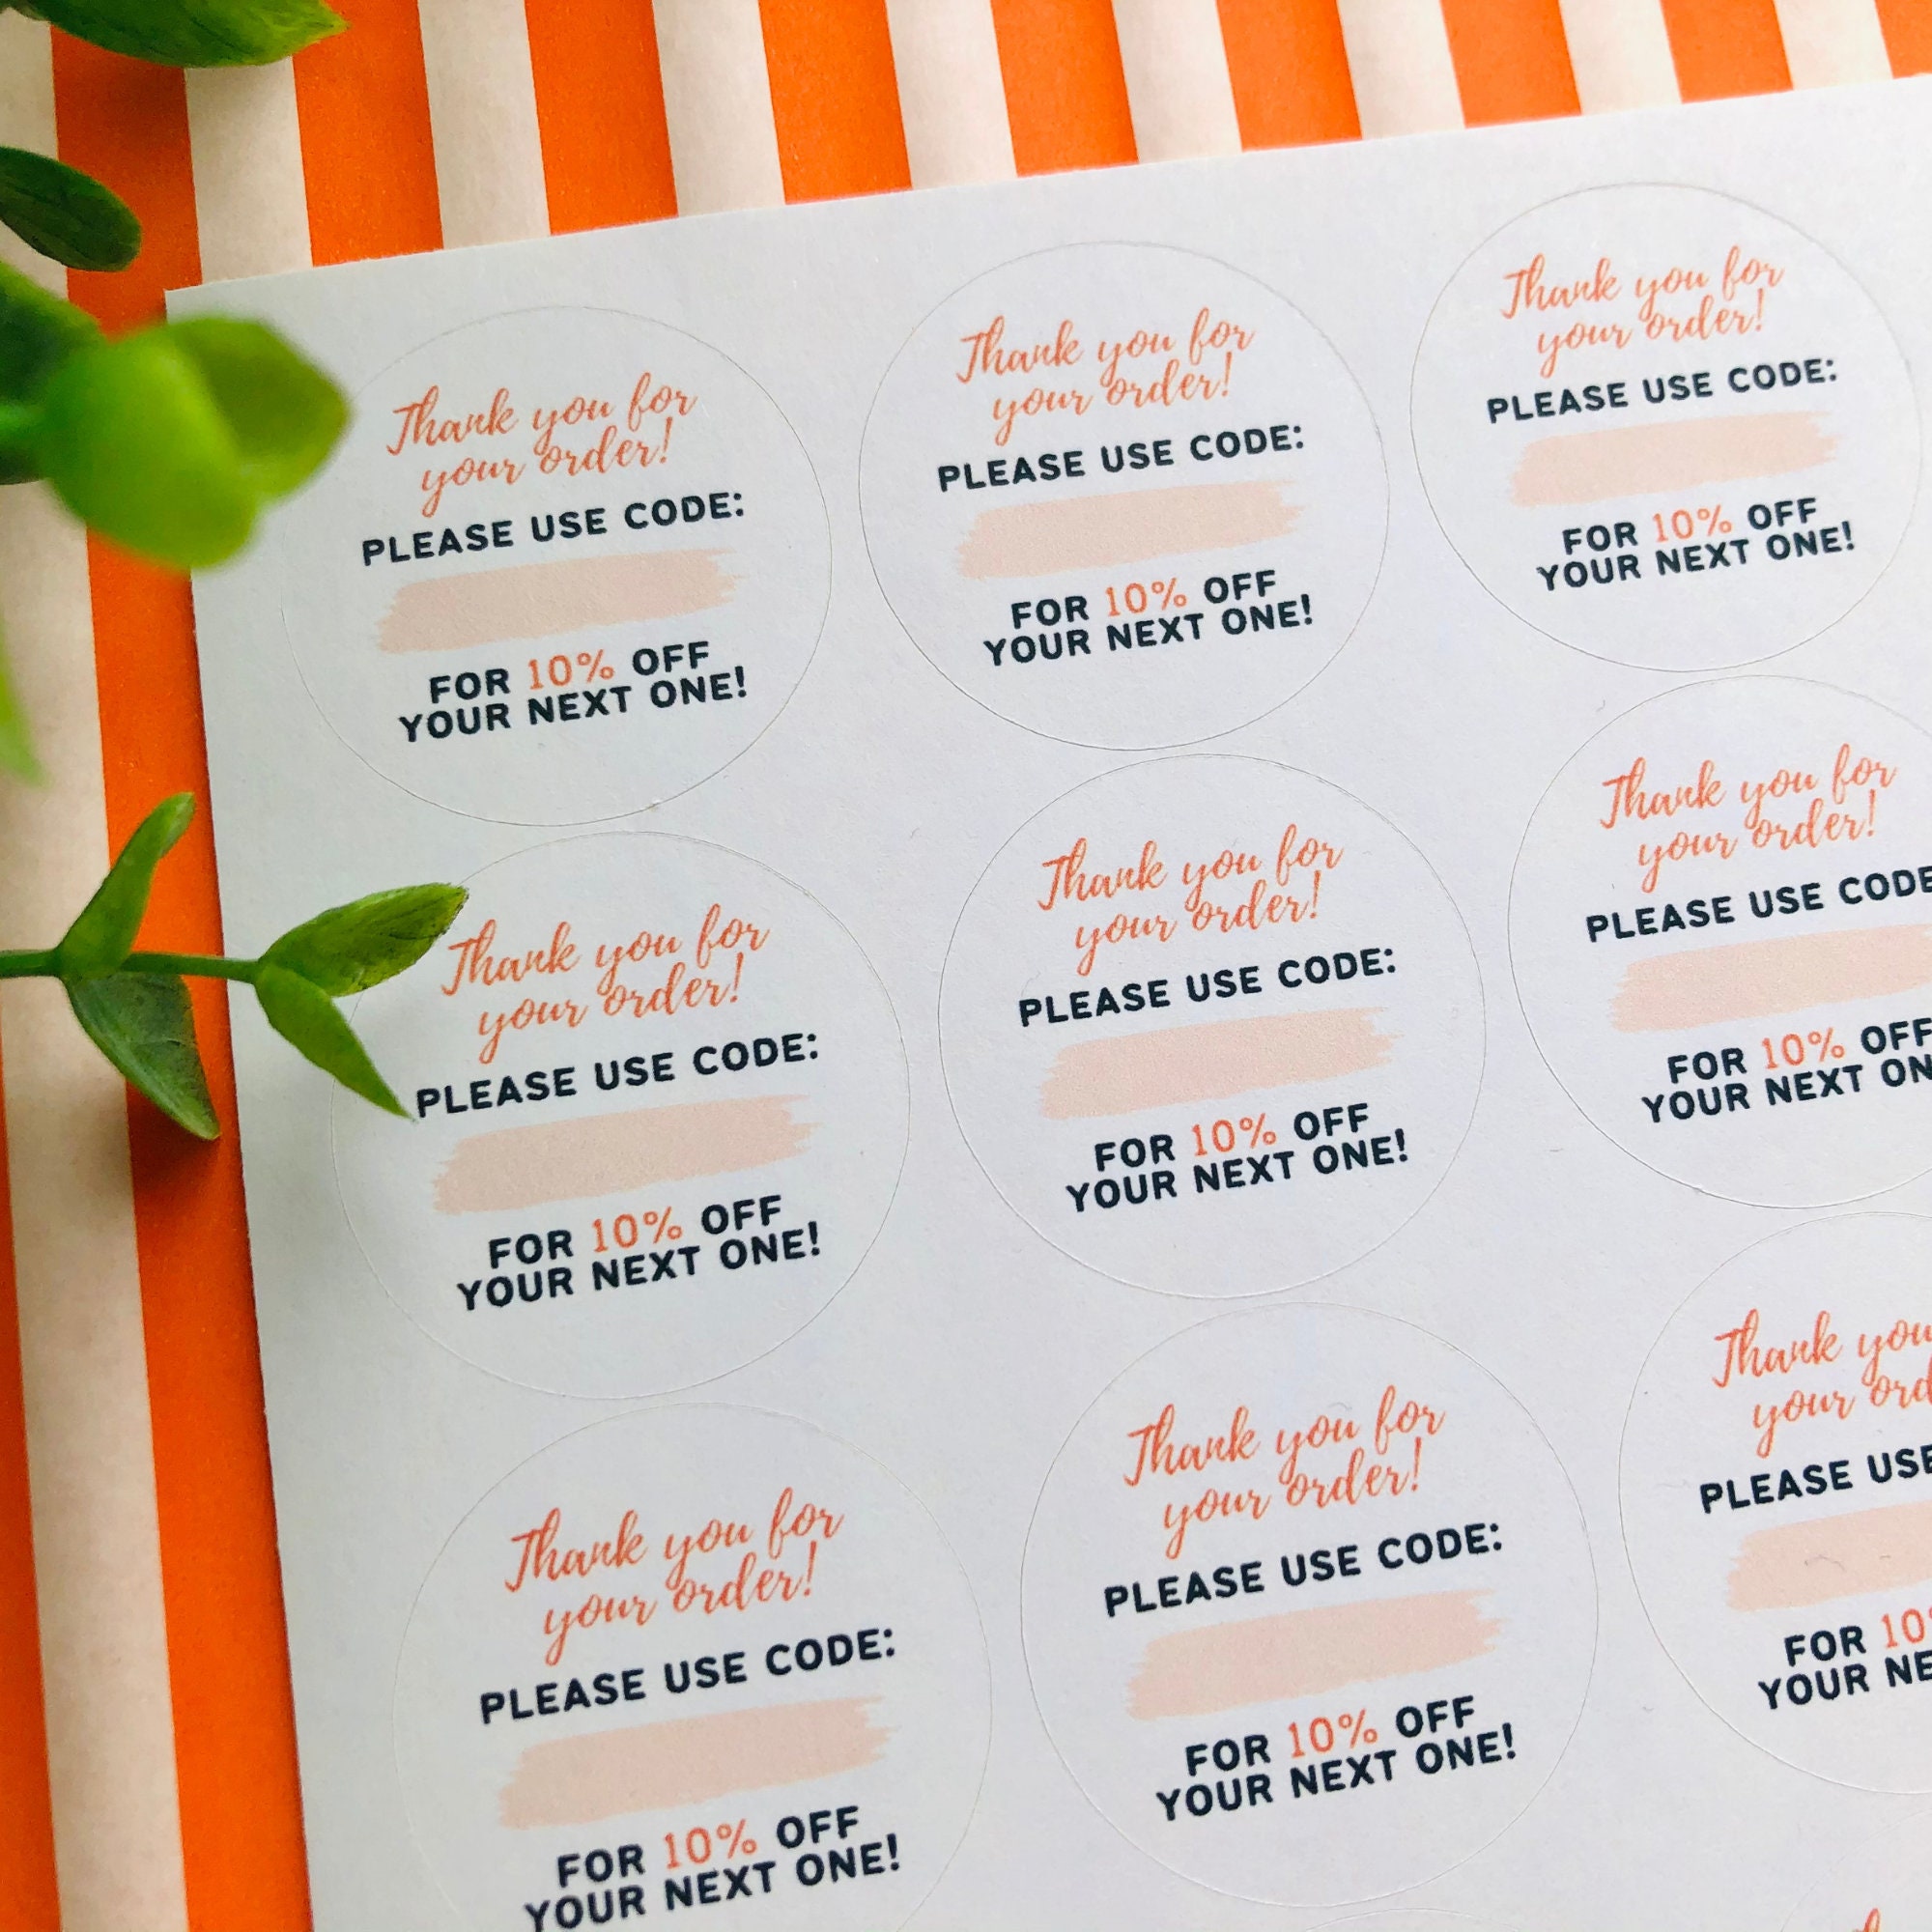 Thank you for
your order!
PLEASE USE CODE:
FOR 10% OFF
YOUR NEXT ONE!
Thank you for
your order!
PLEASE USE CODE:
FOR 10% OFF
YOUR NEXT ONE!
Thank you for
your order!
PLEASE USE CODE:
FOR 10% OFF
YOUR NEXT ONE!
Thank you for
your order!
PLEASE USE CODE:
FOR 10% OFF
YOUR NEXT ONE!
Thank you for
your order!
PLEASE USE CODE:
FOR 10% OFF
YOUR NEXT ONE!
Thank you for
your order!
PLEASE USE CODE
FOR 10% OFF
YOUR NEXT ON
Thank you for
your order!
PLEASE USE CODE:
FOR 10% OFF
YOUR NEXT ONE!
Thank you for
your order!
PLEASE USE CODE:
FOR 10% OFF
YOUR NEXT ONE!
Thank you
your ord
PLEASE USE
FOR 10%
YOUR NE